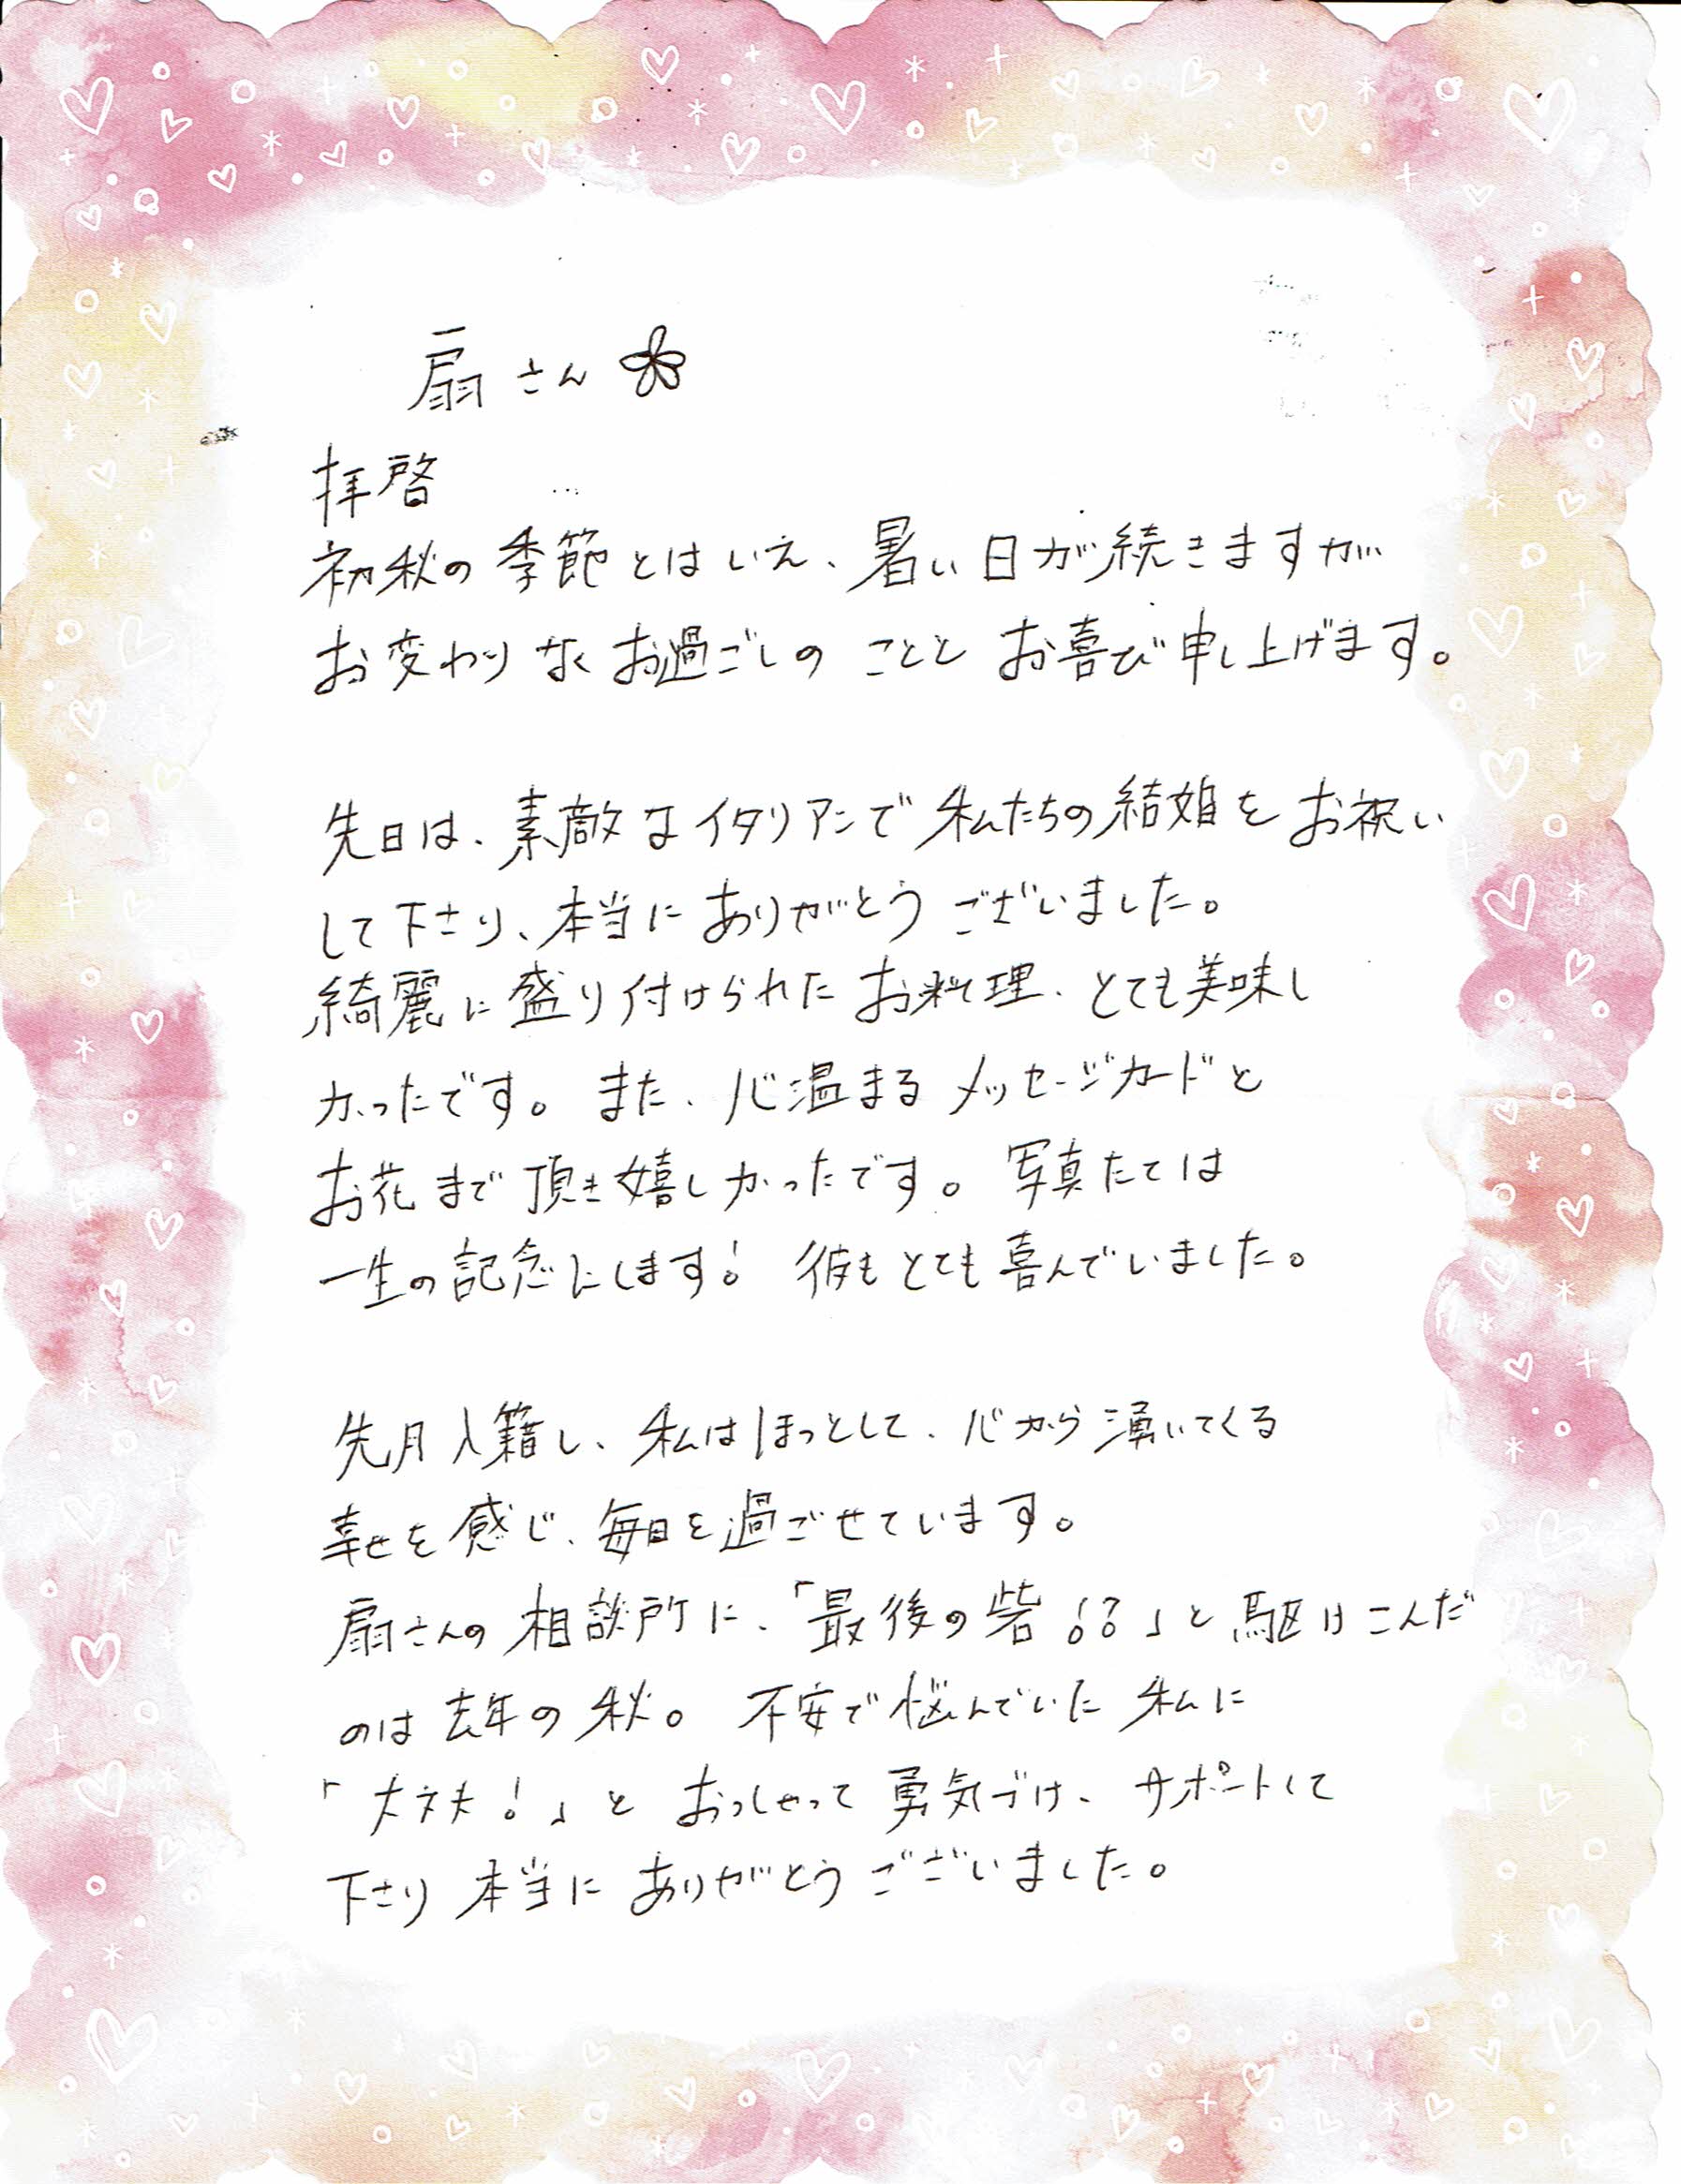 扇さん
拝啓
初秋の季節とはいえ、暑い日が続きますが
お変わりなくお過ごしのことと お喜び申し上げます。
先日は、素敵なイタリアンで私たちの結婚をお祝い
して下さり、本当にありがとうございました。
綺麗に盛り付けられたお料理、とても美味し
かったです。また、心温まるメッセージカードと
お花まで頂き嬉しかったです。写真たては
一生の記念にします! 彼もとても喜んでいました。
先月入籍し、私はほっとして、心から湧いてくる
幸せを感じ、毎日を過ごせています。
扇さんの相談所に、「最後の砦!?」と駆けこんだ
のは去年の秋。不安で悩んでいた私に
「大丈夫!」とおっしゃって勇気づけ、サポートして
下さり本当にありがとうございました。